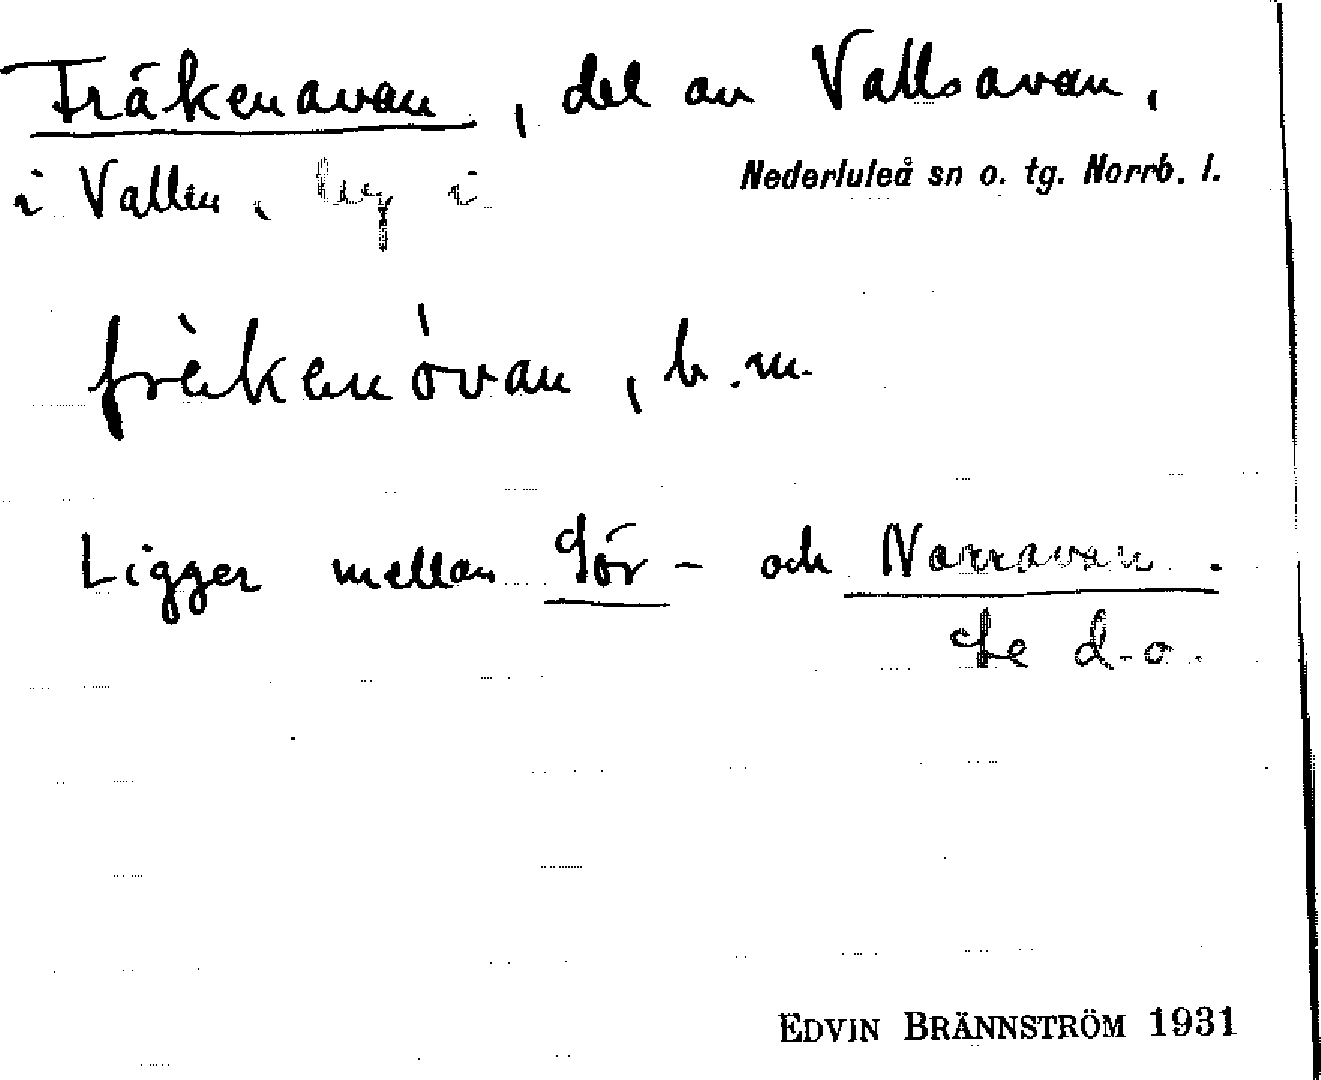 Fräkenavan, del av Vallsavan,
i Vallen, i
Nederluleå sn o. tg. Norrb. l.
frèkenóvan, b.m.
Ligger mellan Sör- och Norravan.
Se d.o.
EDVIN BRÄNNSTRÖM 1931